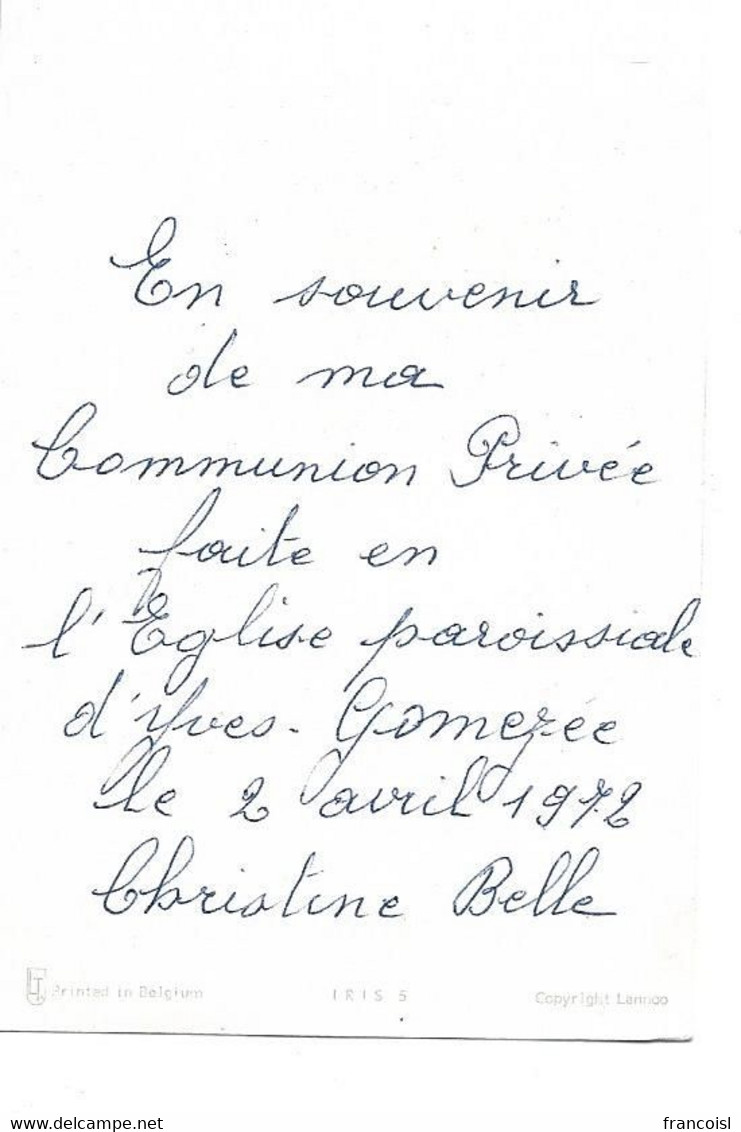 En souvenir
de ma
Communion Privée
faite en
l'Eglise paroissiale
d'Yves-Gomezée
le 2 avril 1972
Christine Belle
Printed in Belgium IRIS 5 Copyright Lannoo
www.delcampe.net francoisl